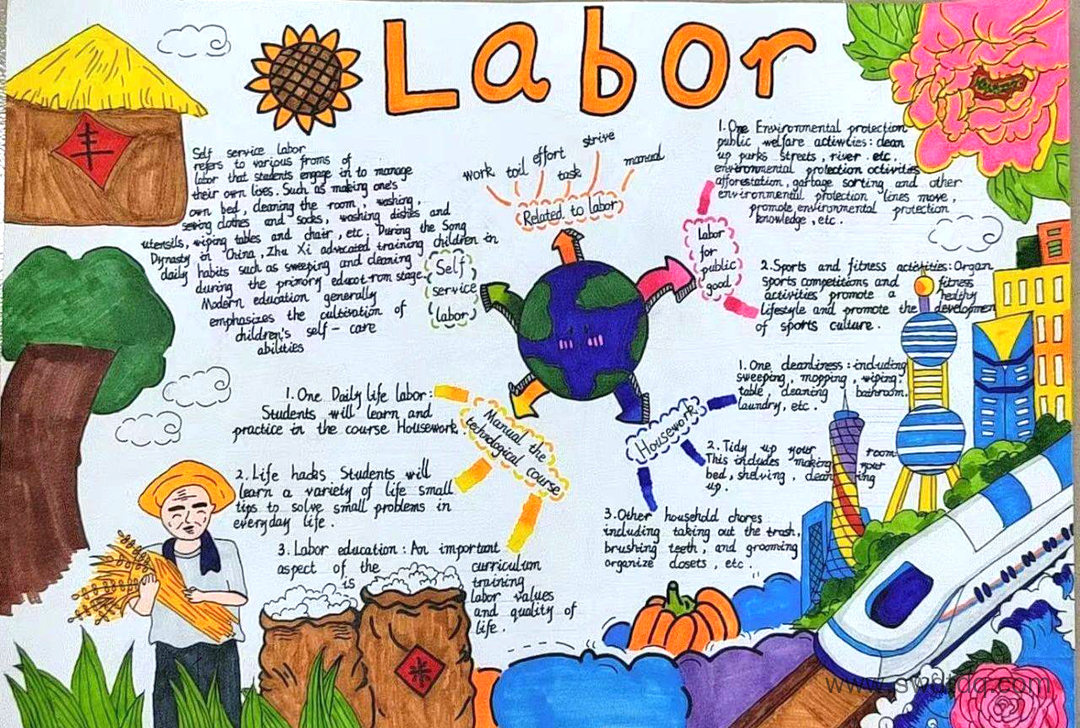 Labor
Self service labor
refers to various froms of
labor that students engage in to manage
their own lives. Such as making one's
own bed, cleaning the room, washing,
sewing clothes and socks, washing dishes and
utensils, wiping tables and chair, etc, During the Song
Dynasty in China, Zhu Xi advocated training children in
daily habits such as sweeping and cleaning
during the primary educat-rom stage.
Modern education generally
emphasizes the cultivation of
children's self-care
abilities
Self
service
labor
work toil effort task strive manual
Related to labor
Labor
for
public
good
1. One Environmental protection
public welfare activities: clean
up parks streets, river etc,
environmental protection octivities
afforestation, garbage sorting and other
environmental protection lines move,
promote environmental protection
knowledge, etc.
2. Sports and fitness activities: Organ
sports competitions and fitness
activities promote a healthy
lifestyle and promote the development
of sports culture.
1. One Daily life labor:
Students will learn and
practice in the course Housework.
2. Life hacks Students will
learn a variety of life small
tips to solve small problems in
everyday life.
3. Labor education: An important
aspect of the curriculum
is training
labor values
and quality of
life.
Manual the
technological course
Housework
1. One cleanliness: including
sweeping, mopping, wiping.
table, cleaning bathroom.
laundry, etc.
2. Tidy up your room
This includes making your
bed, shelving, clean
up.
3. Other household chores
including taking out the trash,
brushing teeth, and grooming
organize closets, etc.
丰
米